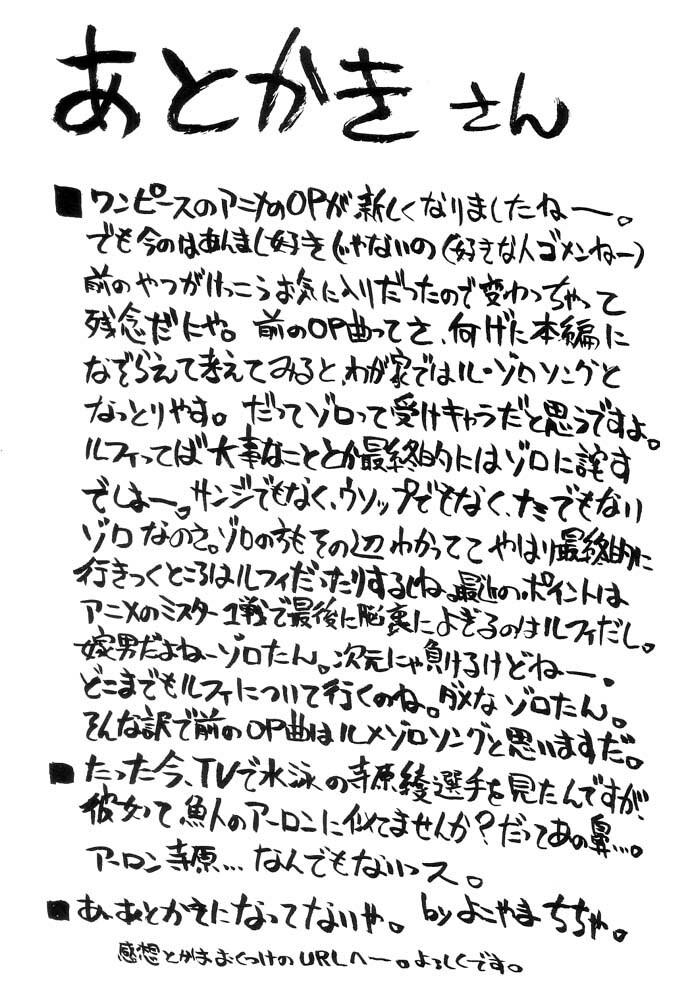 あとかき さん
■ワンピースのアニメのOPが新しくなりましたねー。
でも今のはあんまし好きじゃないの(好きな人ゴメンねー)
前のやつがけっこうお気に入りだったので変わっちゃって
残念だにゃ。前のOP曲ってさ、何げに本編に
なぞらえて考えてみると、わが家ではル・ゾロソングと
なっとりやす。だってゾロって受けキャラだと思うですよ。
ルフィってば大事なこととか最終的にはゾロに託す
でしょー。サンジでもなく、ウソップでもなく、ナミでもない
ゾロなのさ。ゾロの方もその辺わかっててやはり最終的に
行きつくところはルフィだったりするしね。最近のポイントは
アニメのミスター1戦で最後に脳裏によぎるのはルフィだし。
嫁男だよねーゾロたん。次元にゃ負けるけどねー。
どこまでもルフィについて行くのね。ダメなゾロたん。
そんな訳で前のOP曲はル×ゾロソングと思いますだ。
■たった今、TVで水泳の寺原綾選手を見たんですが、
彼女って魚人のアーロンに似てませんか?だってあの鼻…。
アーロン寺原…なんでもないっス。
■あ、あとかきになってないや。byよこやまちちゃ。
感想とかはおくつけのURLへー。よろしくです。